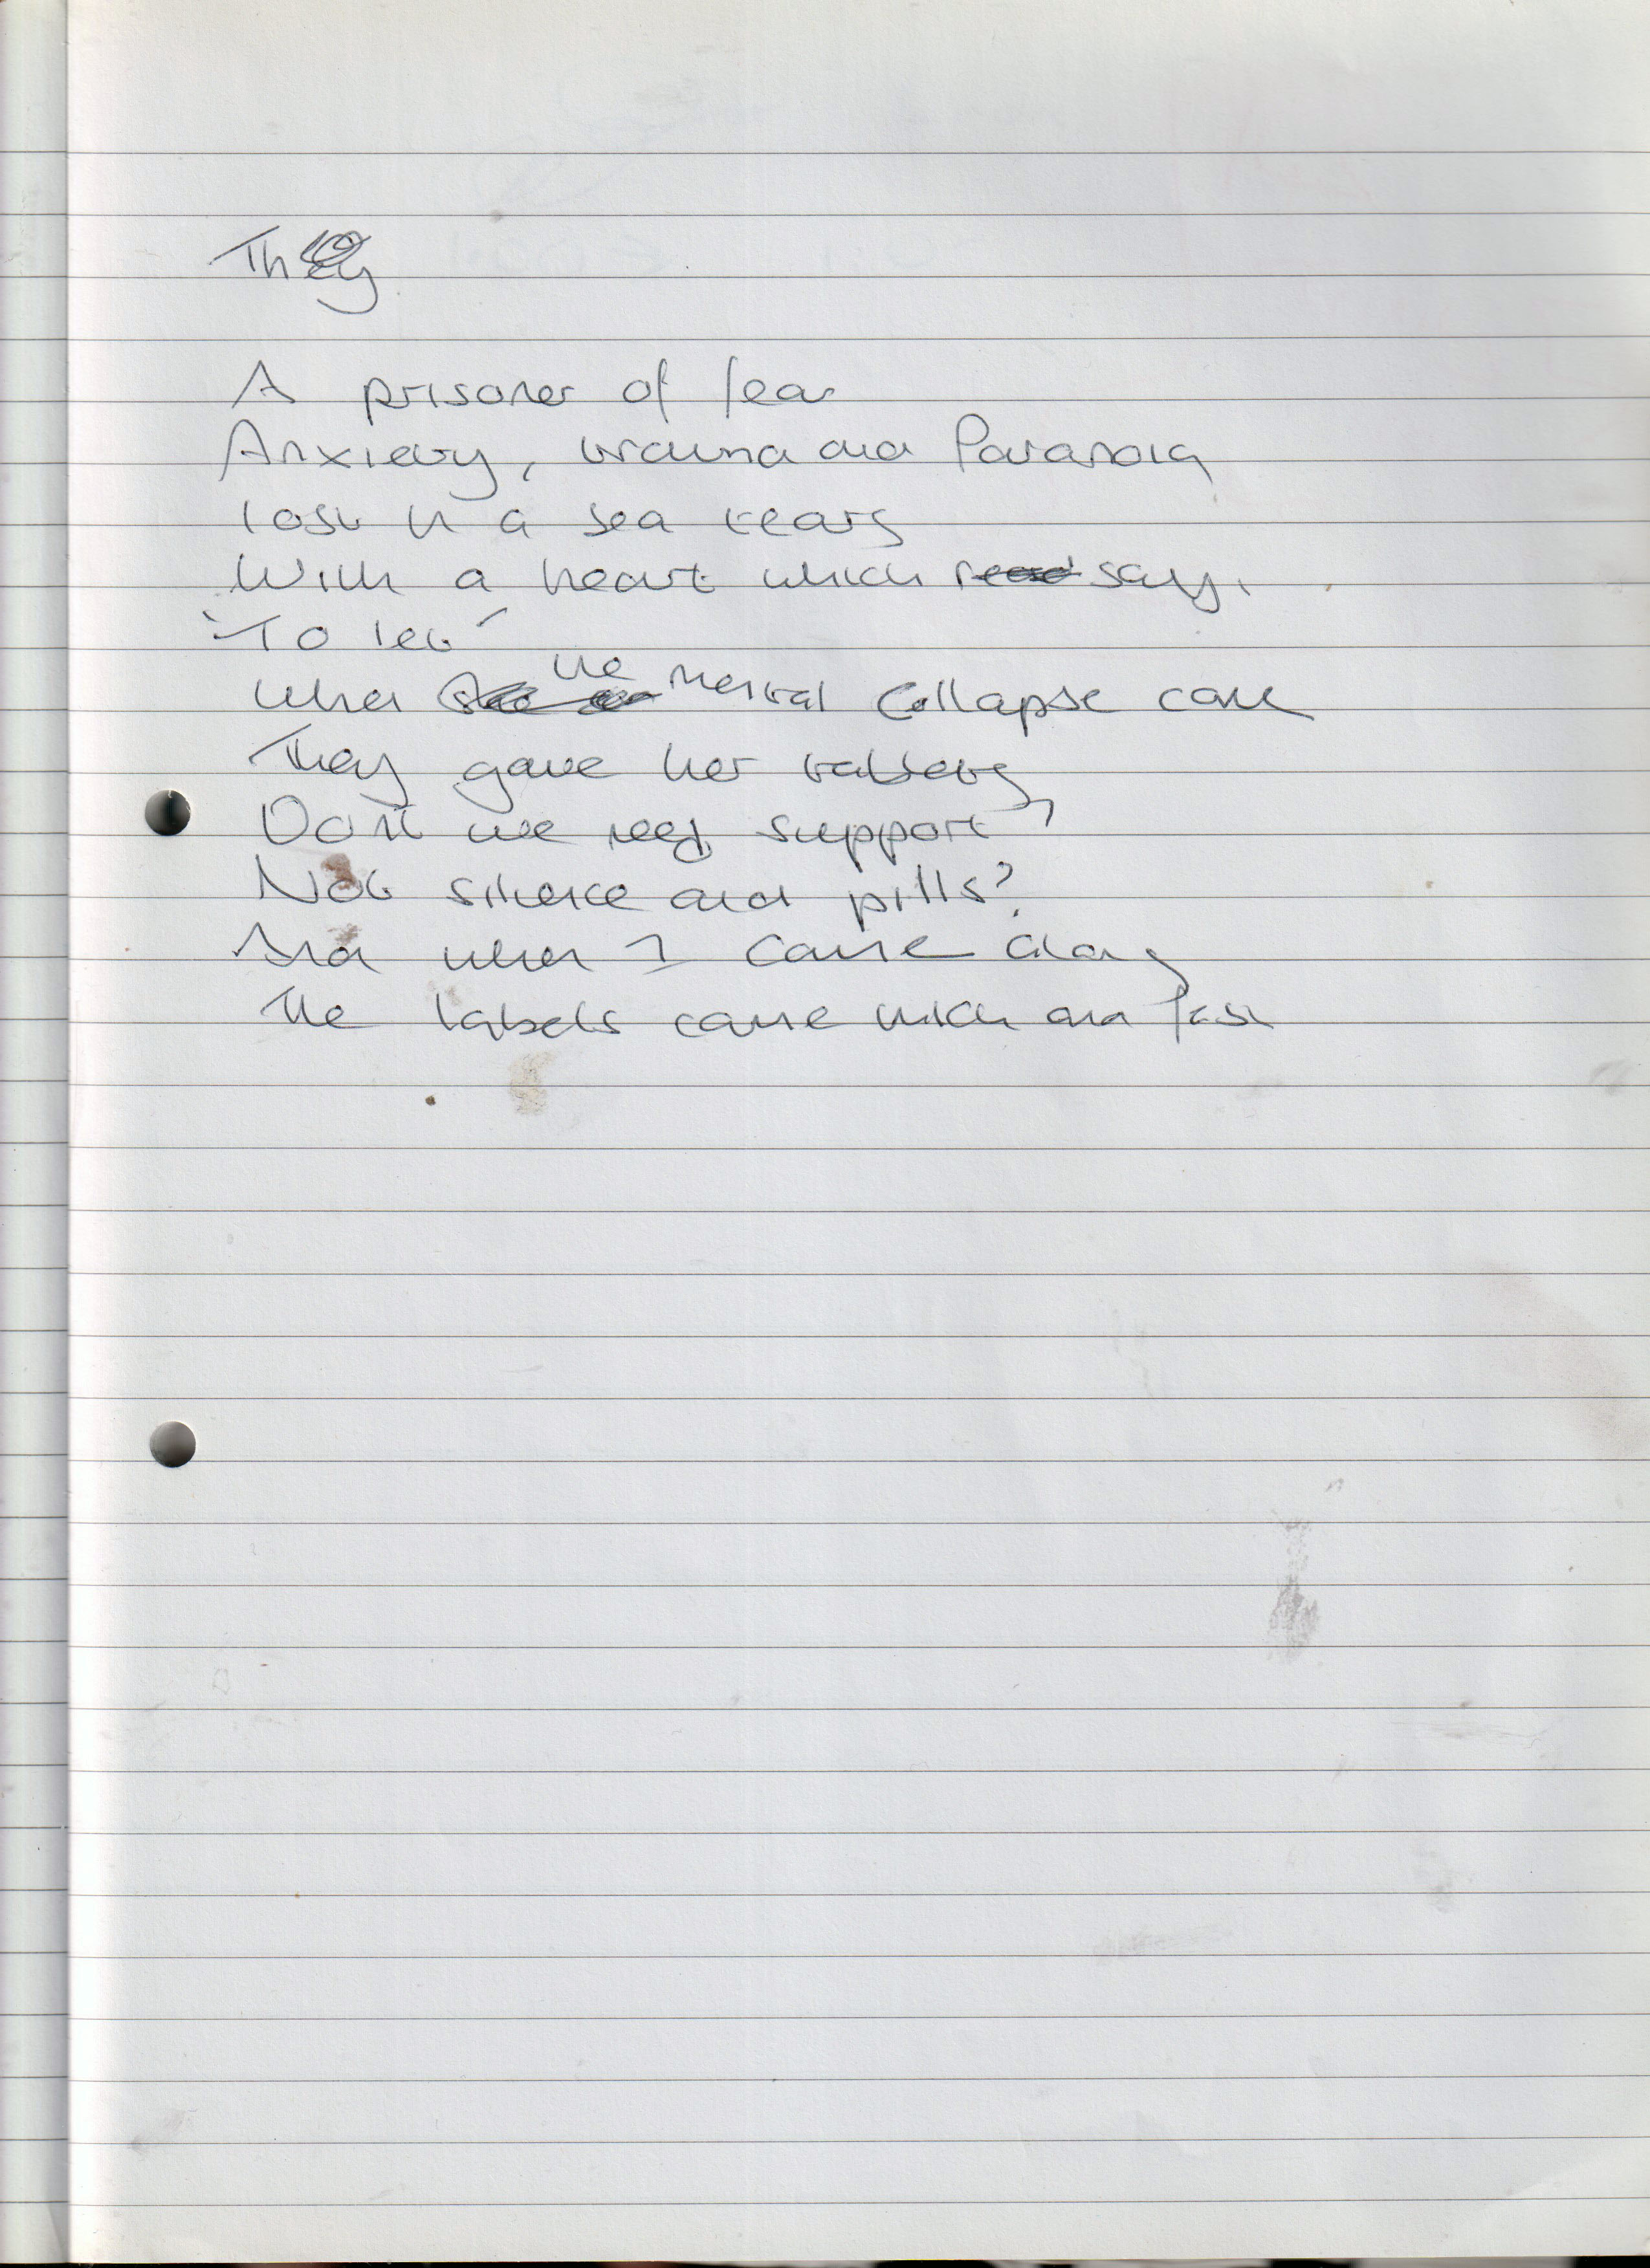 They
A prisoner of fear
Anxiety, trauma and Paranoia
lost in a sea tears
With a heart which says.
'To let'
When the mental collapse came
They gave her tablets
Don't we need support,
Not silence and pills?
And when I came along
The labels came thick and fast